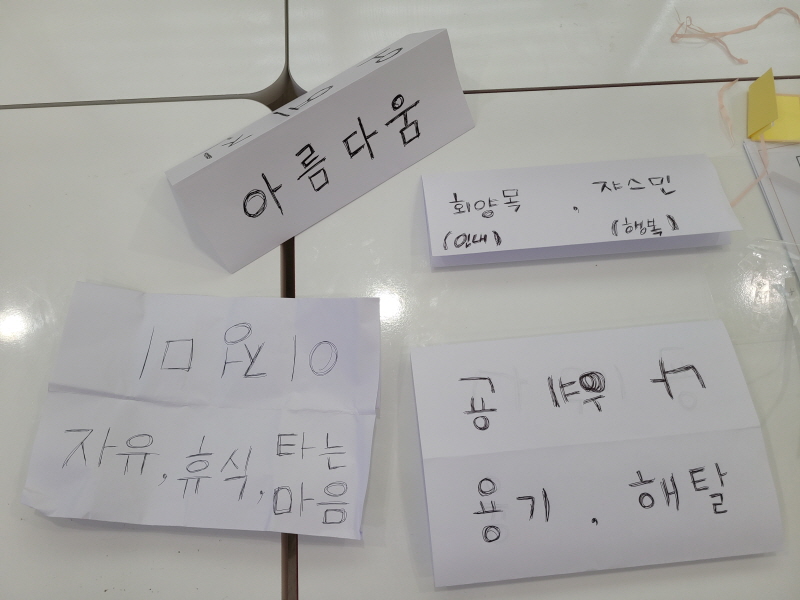 아름다움
회양목 , 쟈스민
(인내) (행복)
자유, 휴식, 타는
마음
용기 , 해탈